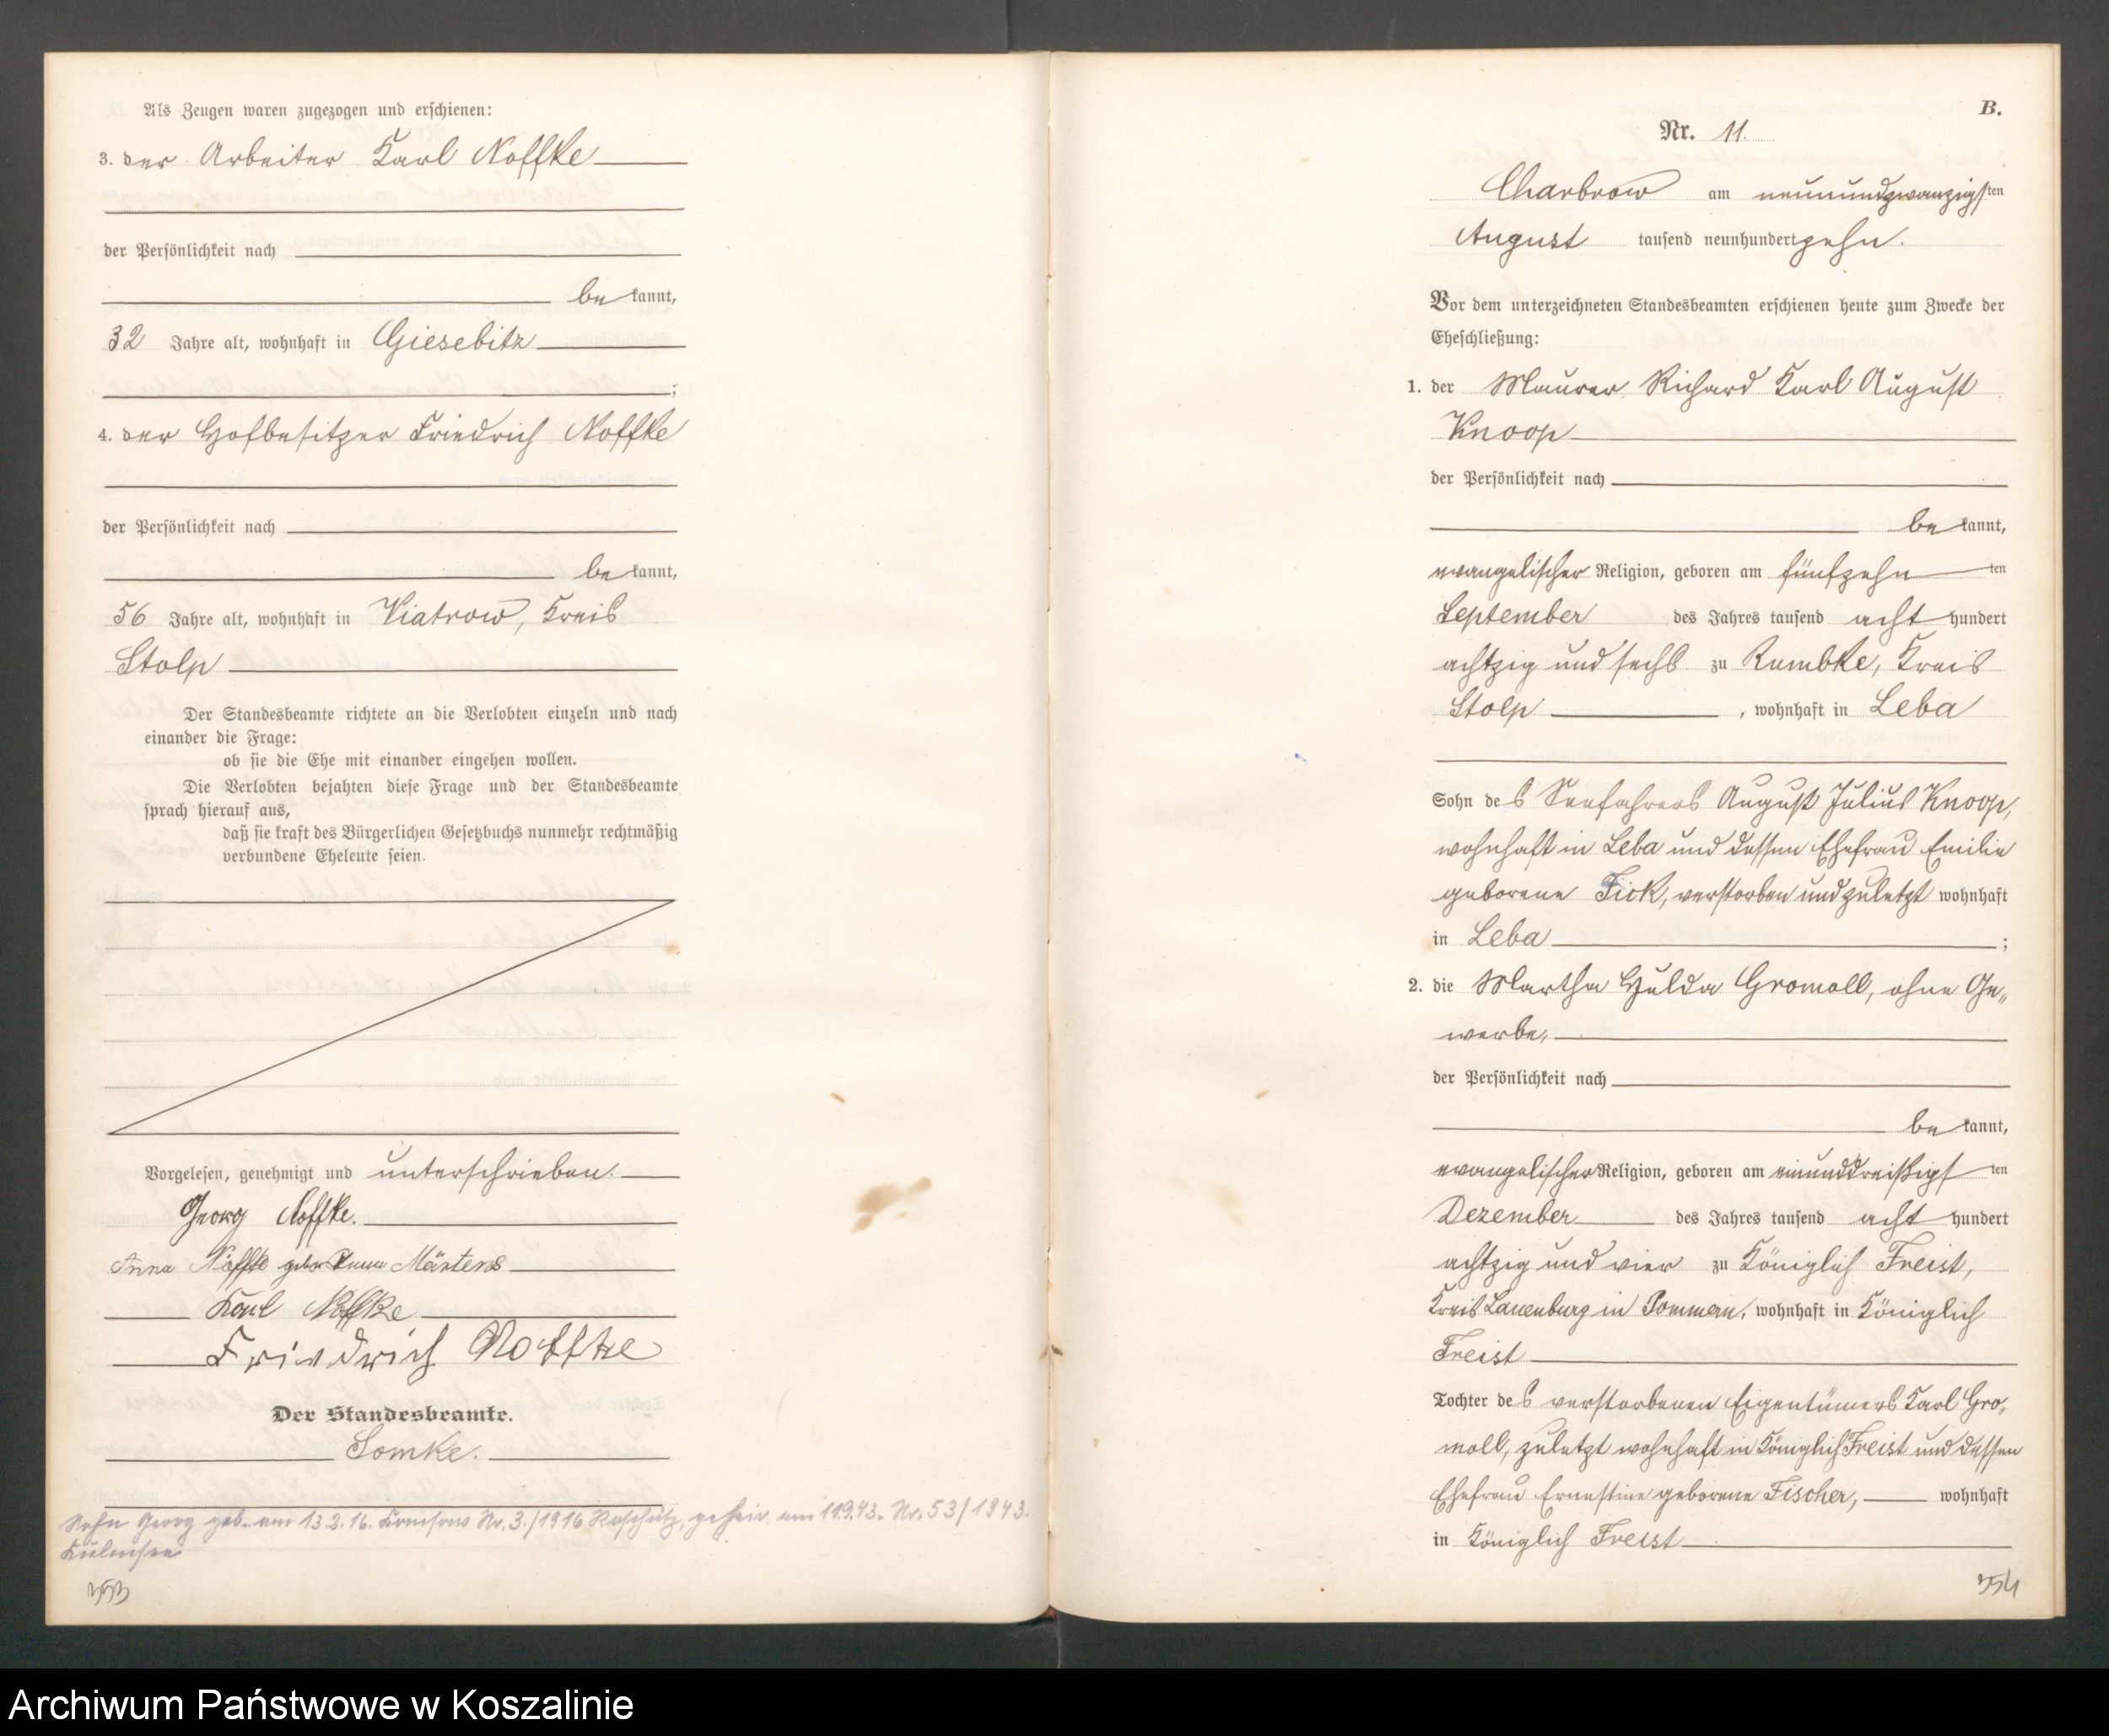 Als Zeugen waren zugezogen und erschienen:
3. der Arbeiter Karl Noffke
der Persönlichkeit nach
be kannt,
32 Jahre alt, wohnhaft in Giesebitz
;
4. der Hofbesitzer Friedrich Noffke
der Persönlichkeit nach
be kannt,
56 Jahre alt, wohnhaft in Viatrow, Kreis
Stolp
Der Standesbeamte richtete an die Verlobten einzeln und nach
einander die Frage:
ob sie die Ehe mit einander eingehen wollen.
Die Verlobten bejahten diese Frage und der Standesbeamte
sprach hierauf aus,
daß sie kraft des Bürgerlichen Gesetzbuchs nunmehr rechtmäßig
verbundene Eheleute seien.
Vorgelesen, genehmigt und unterschrieben.
Georg Noffke.
Anna Noffke geborene Märtens
Karl Noffke
Friedrich Noffke
Der Standesbeamte.
Somke.
Sohn Georg geb. am 13.2.16. Nr. 3./1916 geheir. am 11.9.43. Nr. 53/1943.
Kulmsee
353
B.
Nr. 11.
Charbrow am neunundzwanzigsten
August tausend neunhundertzehn.
Vor dem unterzeichneten Standesbeamten erschienen heute zum Zwecke der
Eheschließung:
1. der Maurer Richard Karl August
Knoop
der Persönlichkeit nach
be kannt,
evangelischer Religion, geboren am fünfzehn ten
September des Jahres tausend acht hundert
achtzig und sechs zu Rumbke, Kreis
Stolp , wohnhaft in Leba
Sohn des Seefahrers August Julius Knoop,
wohnhaft in Leba und dessen Ehefrau Emilie
geborene Fick, verstorben und zuletzt wohnhaft
in Leba ;
2. die Martha Hulda Gromoll, ohne Ge„
werbe,
der Persönlichkeit nach
be kannt,
evangelischer Religion, geboren am einunddreißigs ten
Dezember des Jahres tausend acht hundert
achtzig und vier zu Königlich Freist,
Kreis Lauenburg in Pommern, wohnhaft in Königlich
Freist
Tochter des verstorbenen Eigentümers Karl Gro„
moll, zuletzt wohnhaft in Königlich Freist und dessen
Ehefrau Ernestine geborene Fischer, wohnhaft
in Königlich Freist
354
Archiwum Państwowe w Koszalinie